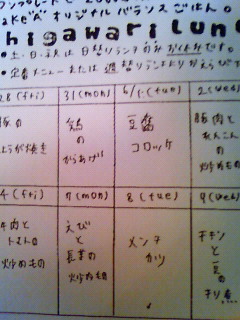 ake'A オリジナル バランスごはん。
higawari Lunc
・土・日・祝は 日替りランチのみ お休みです。
・定番メニュー または 週替りランチよりえらびて
28 (fri) 31 (mon) 6/1 (tue) 2 (wed)
豚の しょうが焼き
鶏の からあげ
豆腐 コロッケ
豚肉と れんこんの 炒めもの
4 (fri) 7 (mon) 8 (tue) 9 (wed)
牛肉と トマトの 炒めもの
えびと 長芋の 炒めもの
メンチ かつ
チキンと 豆の チリ煮